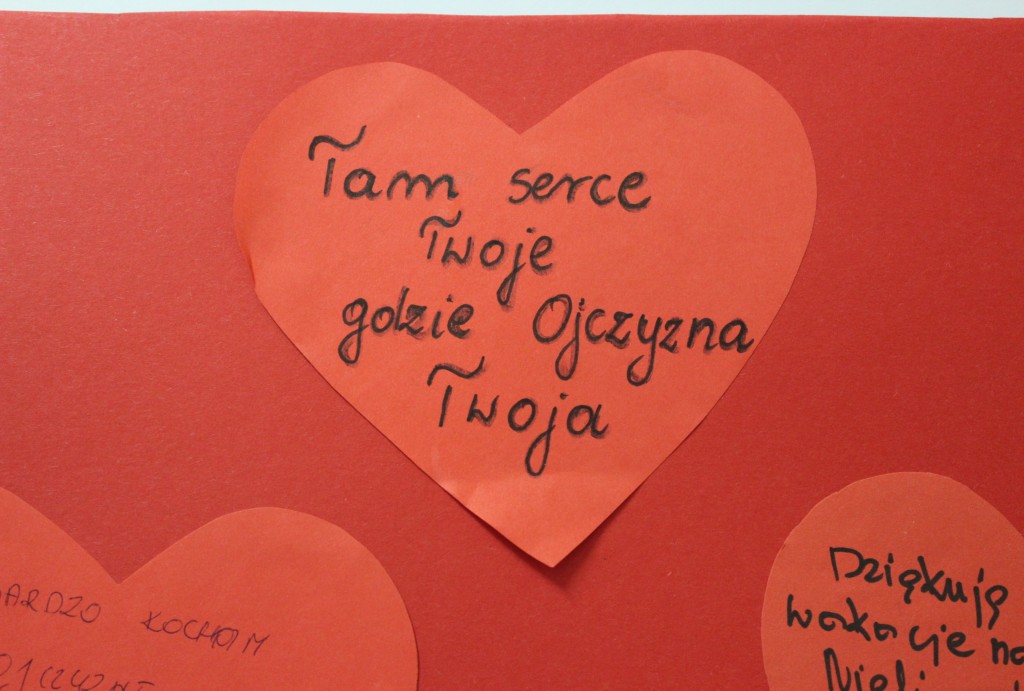 Tam serce
Twoje
gdzie Ojczyzna
Twoja
KOCHAM
Dziękuję
wakacje